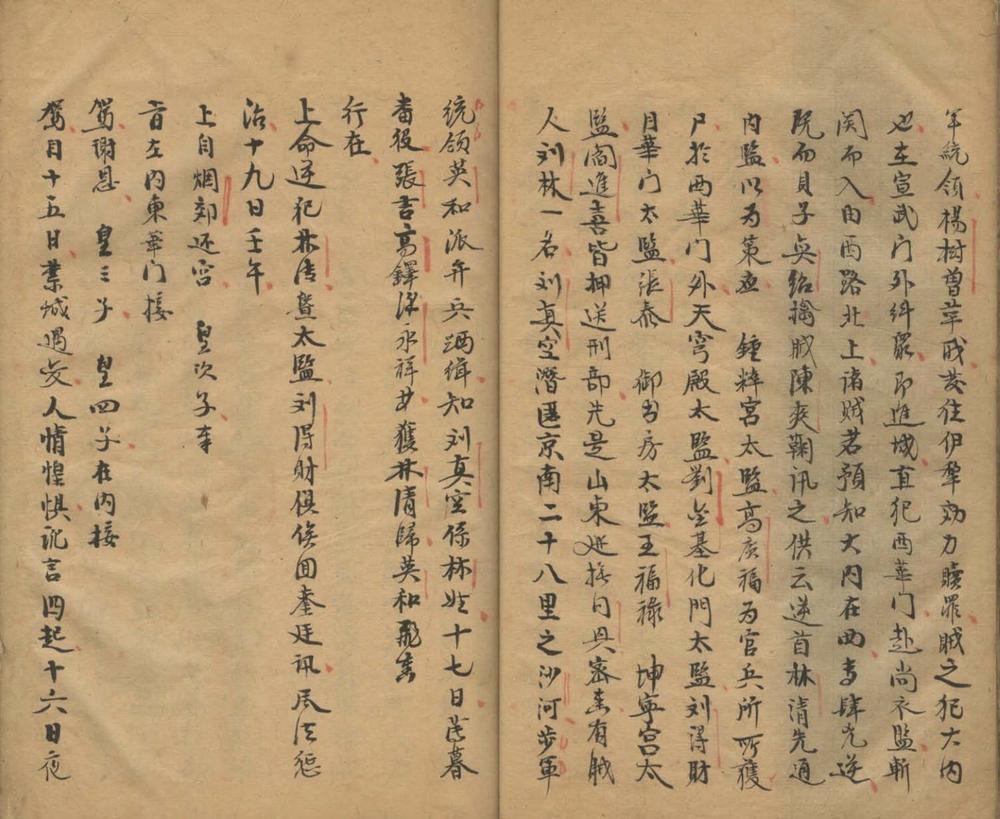 軍統領楊樹曽革职发往伊犁効力贖罪賊之犯大内
也在宣武门外糾眾即進城直犯西華门赴尚衣監斬
関而入由西路北上诸賊若預知大内在西者肆逆
既而貝子奕紹擒賊陳爽鞠讯之供云逆首林清先通
内監以为策应 鍾粹宮太監高广福为官兵所獲
尸於西華门外天穹殿太監劉金基化門太監刘得財
月華门太監張泰 御书房太监王福祿 坤宁宫太
監阎進喜皆押送刑部先是山東巡撫同興密奏有賊
人刘林一名刘真空潛匿京南二十八里之沙河步軍
統領英和派弁兵洒缉知刘真空係林姓十七日薄暮
番役張吉高鐸永祥等獲林清歸英和飛奏
行在
上命逆犯林清暨太監刘得財俱俟回銮廷讯尽法惩
治十九日壬午
上自烟郊还宫 皇次子奉
旨在内東華门接
駕謝恩 皇三子 皇四子在内接
駕自十五日禁城遇变人情惶惧讹言四起十六日夜